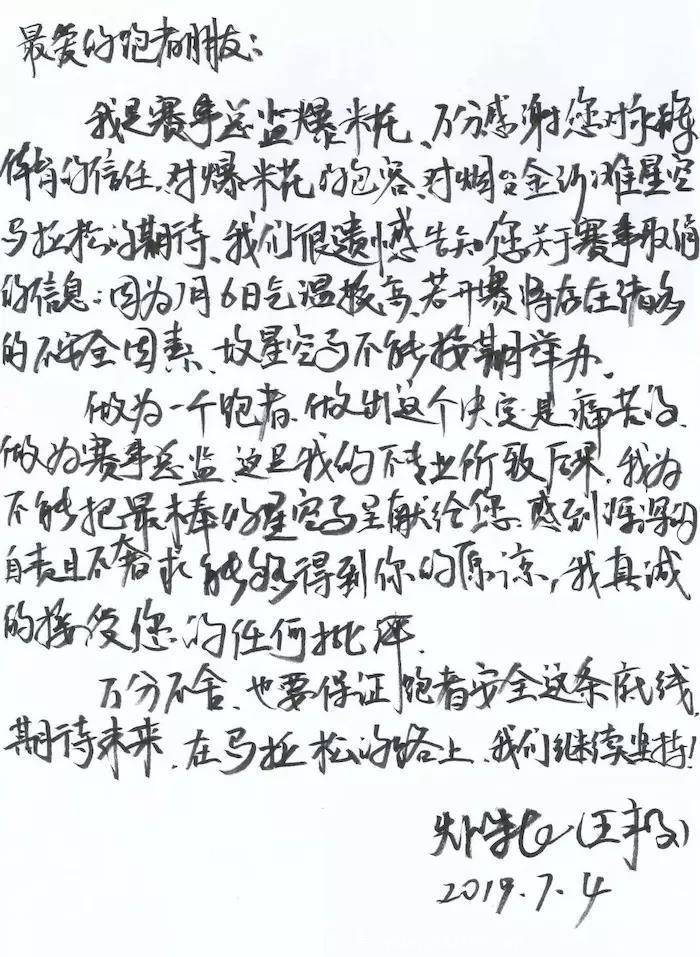 最爱的跑者朋友：
我是赛事总监爆米花、万分感谢您对永稼
体育的信任、对爆米花的包容、对烟台金沙滩星空
马拉松的期待、我们很遗憾告知您关于赛事取消
的信息：因为7月6日气温极高、若开赛将存在诸多
的不安全因素、故星空马不能按期举办、
做为一个跑者、做出这个决定是痛苦的、
做为赛事总监、这是我的不专业所致后果、我为
不能把最棒的星空马呈献给您、感到深深的
自责且不奢求能够得到你的原谅，我真诚
的接受您的任何批评.
万分不舍、也要保证跑者安全这条底线、
期待未来、在马拉松的路上、我们继续坚持！
(王
2019.7.4